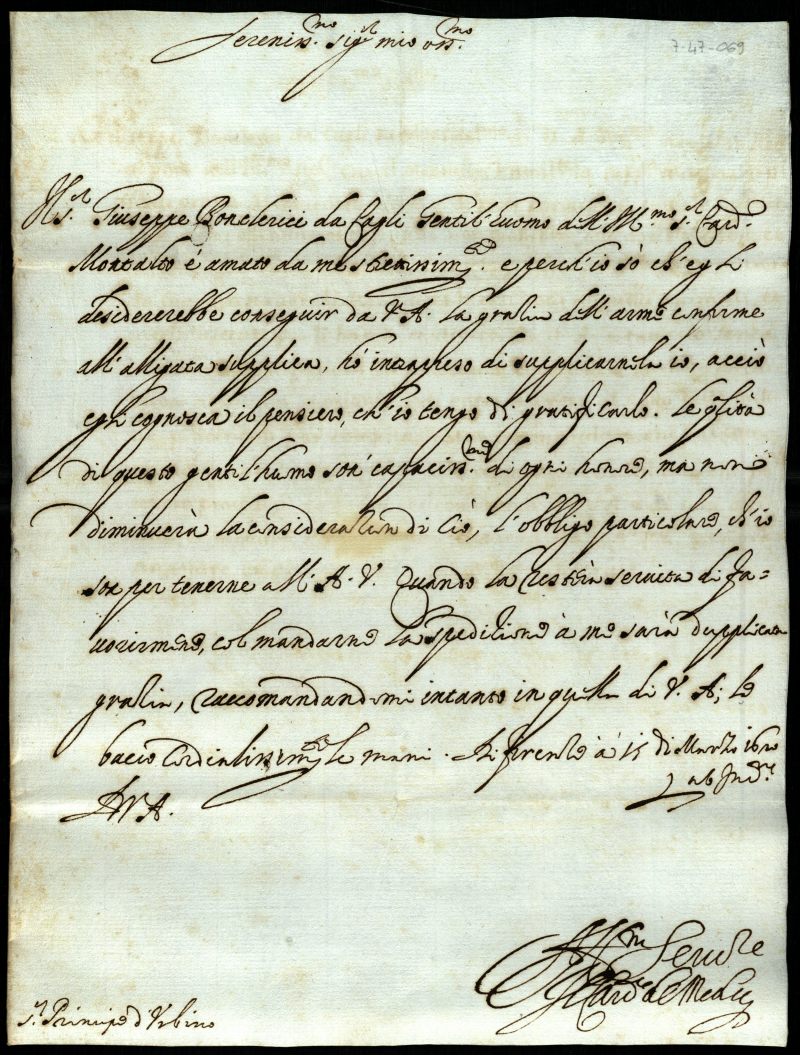 Sereniss.mo sig.r mio oss.mo
7-47-069
Il s.r Giuseppe Bonclerici da Cagli Gentil'huomo dell'Ill.mo s.r Card.
Montalto è amato da me strettissim.te e perch'io sò ch'egli
desidererebbe conseguir da V.A. la gratia dell'arme conforme
all'alligata supplica, hò intrapreso di supplicarnela io, acciò
egli cognosca il pensiero, ch'io tengo di gratificarlo. Le qlità
di questo gentil'huomo son' capaciss.me di ogni honore, ma non
diminuerà la consideration di ciò, l'obbligo particolare, ch'io
son per tenerne all'A.V. Quando la resterà servita di fa=
vorirmene, col mandarne la speditione à me sarà duplicata
gratia, raccomandandomi intanto in quella di V.A; le
bacio cordialissim.te le mani. Di firenze à 15 di Marzo 1620
ab Inc.ne
Di V.A.
Aff.mo Serv.re
Il Card. de Medici
s.r Principe d'Urbino